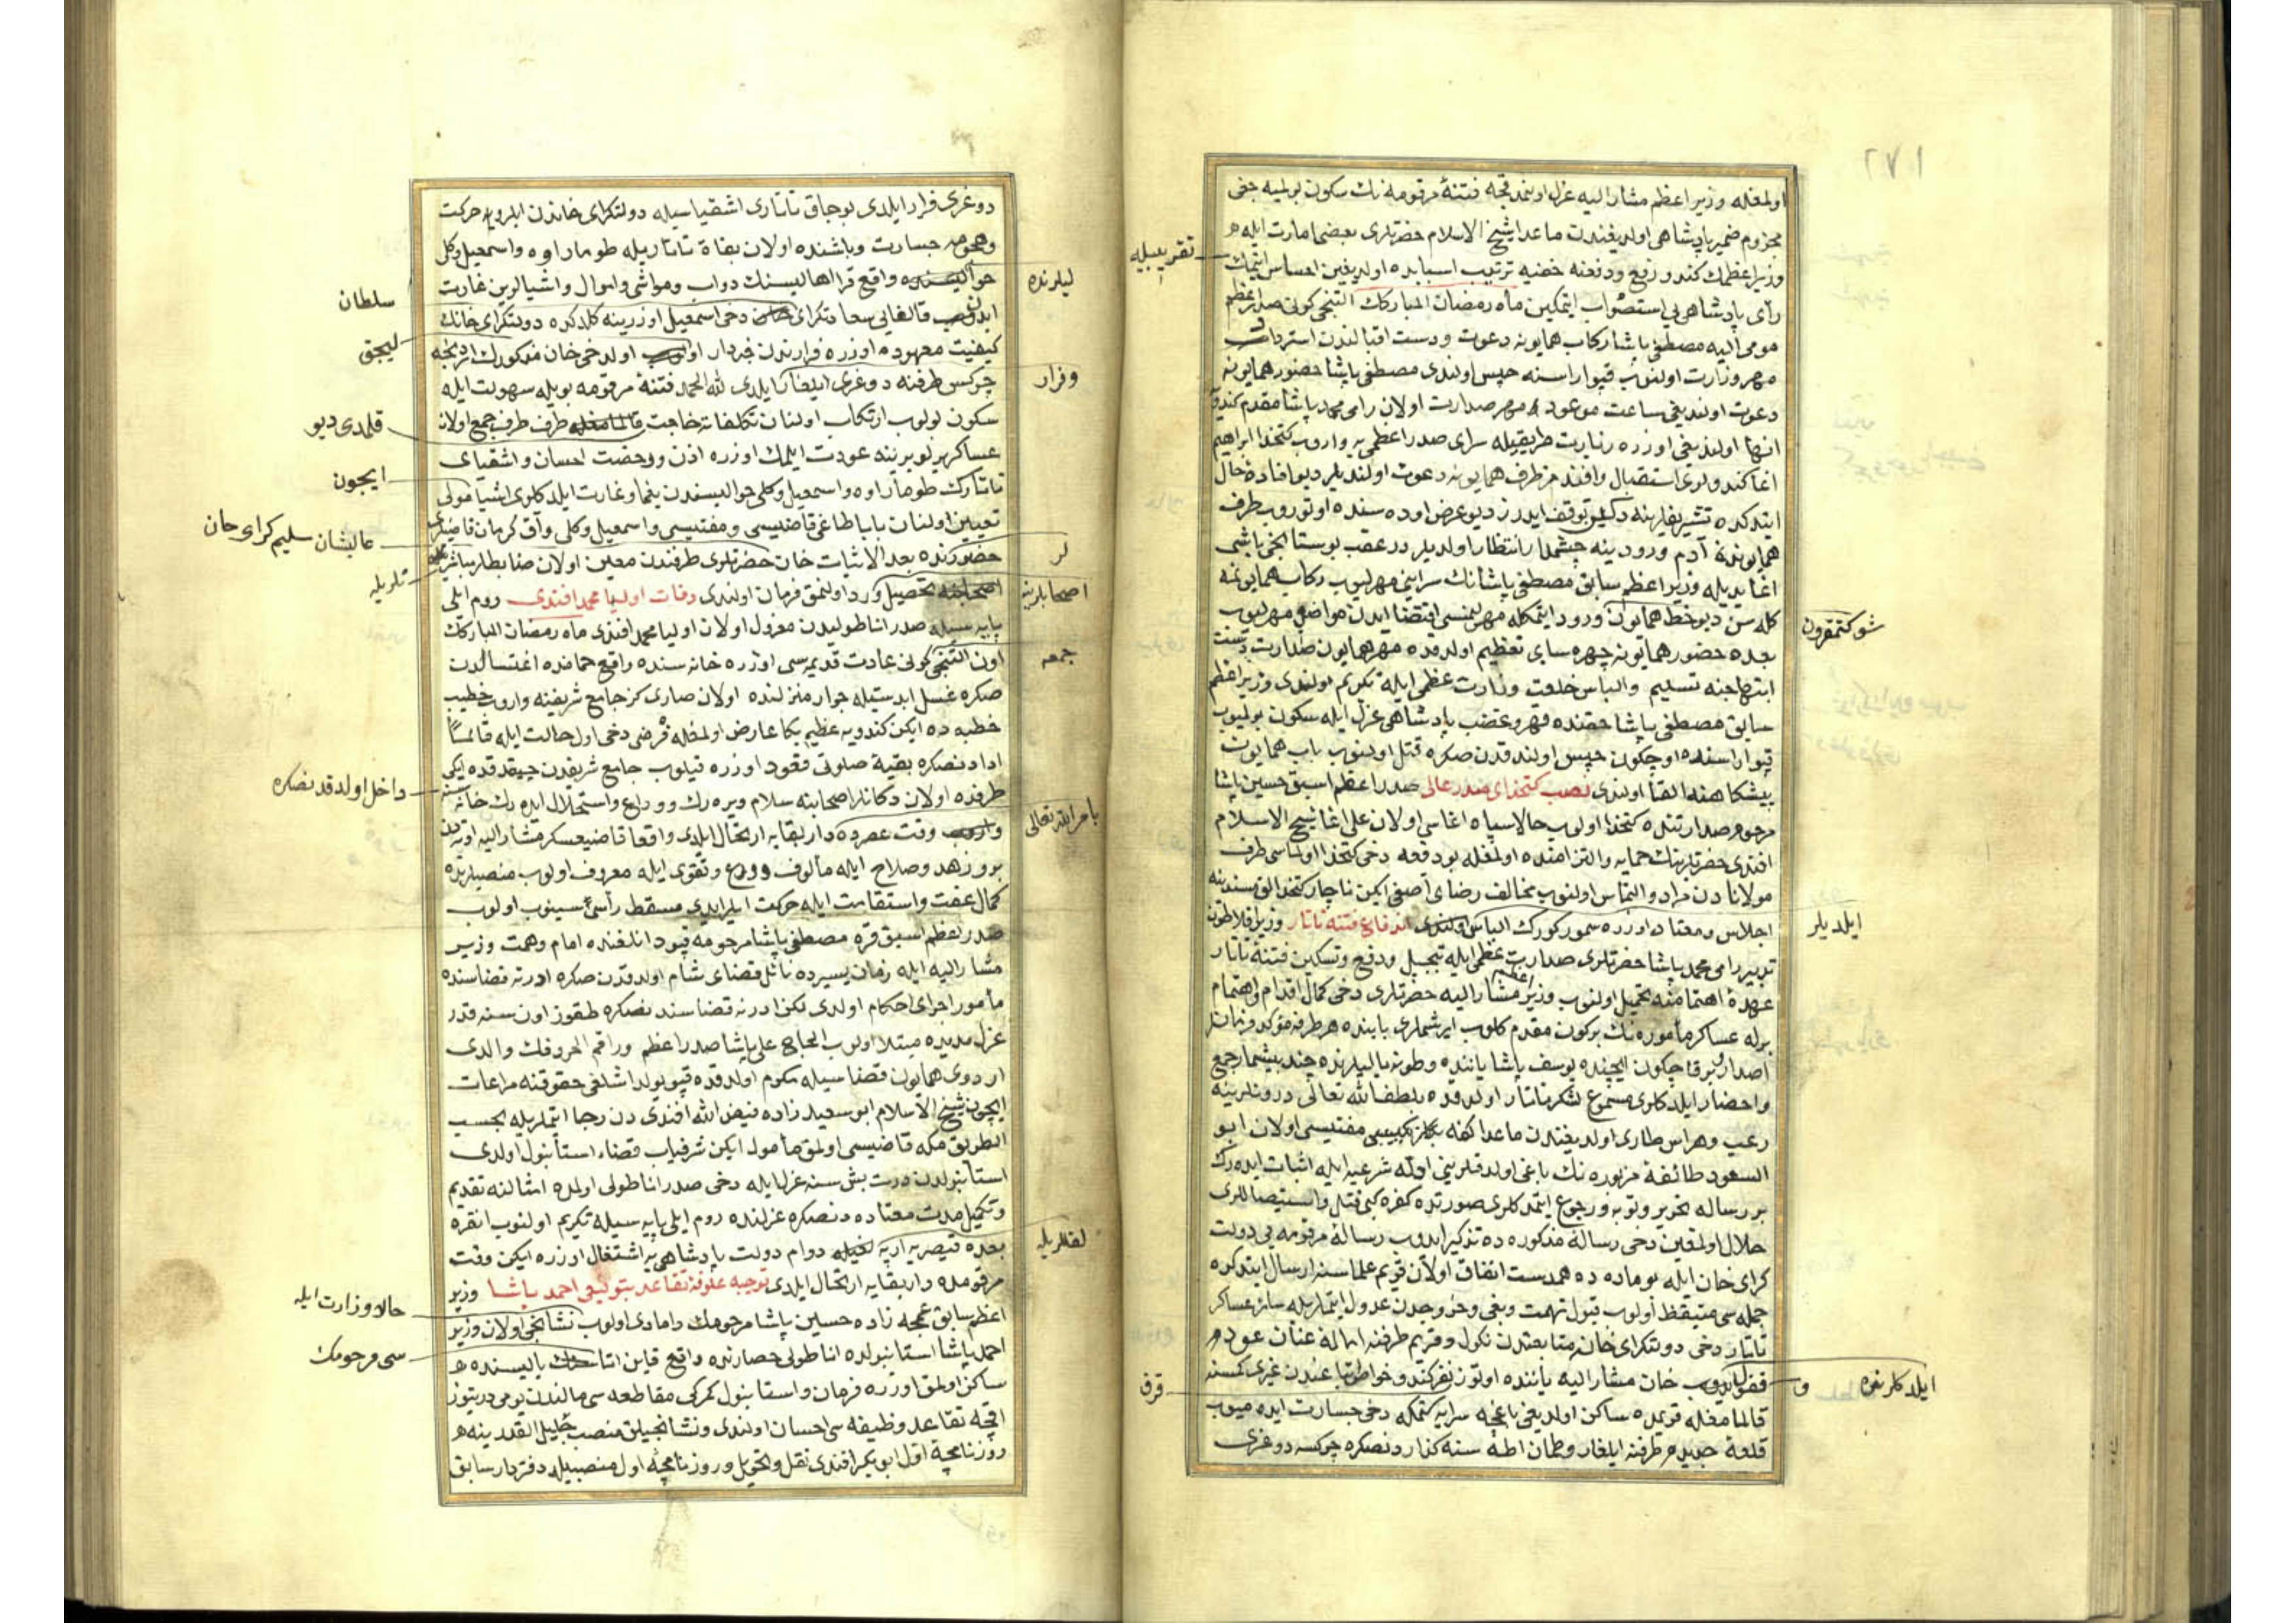 ١٧٢
اولمغله وزير اعظم مشار اليه عزل اولنمدقچه فتنهٔ مرقومه نك سكون بولميه جغى
مجزوم ضمير پادشاهى اولديغندن ماعدا شيخ الاسلام حضرتلرى بعضى امارت ايله
تقريبيله
وزير اعظمك كندو رفع ودفعنه خفيه ترتيب اسبابده اولديغين احساس ايتمك
رأى پادشاهى يى استصواب ايتمكين ماه رمضان المباركك التنجى كونى صدر اعظم
مومى اليه مصطفى پاشا ركاب همايونه دعوت ودست اقبالندن استرداد
مهر وزارت اولنوب قپو اراسنه حبس اولندى مصطفى پاشا حضور همايونه
دعوت اولنديغى ساعت موعود مهر صدارت اولان رامى محمد پاشا مقدم كندويه
انها اولنديغى اوزره زيارت طريقيله سراى صدر اعظمى يه واروب كتخدا ابراهيم
اغا كندولرى استقبال وافندمز طرف همايونه دعوت اولنديلر ديو افادهٔ حال
ايتدكده تشريفلرينه دكين توقف ايدرز ديو عرض اوده سنده اوتوروب طرف
همايوندن آدم ورودينه چشمدار انتظار اولديلر در عقب بوستانجى باشى
اغا يديله وزير اعظم سابق مصطفى پاشانك سرايني مهرليوب ركاب همايونمه
كله سن ديو خط همايون ورود ايتمكله مهرلنمسى اقتضا ايدن مواضعى مهرليوب
شوكتمقرون
بعده حضور همايونه چهره ساى تعظيم اولدقده مهر همايون صدارت دست
ابتهاجنه تسليم والباس خلعت وزارت عظمى ايله تكريم اولندى وزير اعظم
سابق مصطفى پاشا حقنده قهر وغضب پادشاهى عزل ايله سكون بولميوب
قپو اراسنده اوچ كون حبس اولندقدن صكره قتل اولنوب باب همايون
پيشكاهنه القا اولندى نصب كتخداى صدر عالى صدر اعظم اسبق حسين پاشا
مرحوم صدارتنده كتخدا اولوب حالا سپاه اغاسى اولان على اغا شيخ الاسلام
افندى حضرتلرينك حمايه والتزامنده اولمغله بو دفعه دخى كتخدا اولماسى طرف
مولانا دن مراد والتماس اولنوب مخالف رضاى آصفى ايكن ناچار كتخدالق مسندينه
اجلاس ومعتاد اوزره سمور كورك الباس اولندى اندفاع فتنهٔ تاتار وزير افلاطون
ايلديلر
تدبير رامى محمد پاشا حضرتلرى صدارت عظمى ايله تبجيل ودفع وتسكين فتنهٔ تاتار
عهدهٔ اهتمامنه تحميل اولنوب وزير اعظم مشار اليه حضرتلرى دخى كمال اقدام واهتمام
برله عساكر مأموره نك بر كون مقدم كلوب ايرشملرى بابنده هر طرفه مؤكد فرمانلر
اصدار وبر قاچ كون ايچنده يوسف پاشا ياننده وطونه ياليلرنده چند بيشمار جمع
واحضار ايلدكلرى مسموع لشكر تاتار اولدقده بلطف الله تعالى درونلرينه
رعب وهراس طارى اولديغندن ماعدا كفه مفتيسى اولان ابو
السعود طائفهٔ مزبوره نك باغى اولدقلرينى ادلهٔ شرعيه ايله اثبات ايده رك
بر رساله تحرير وتوبه ورجوع ايتمدكلرى صورتده كفره كبى قتل واستيصاللرى
حلال اولمقين دخى رسالهٔ مذكوره ده تذكير ايدوب رسالهٔ مرقومه يى دولت
كراى خان ايله بو ماده ده همدست اتفاق اولان قريم علماسنه ارسال ايتدكده
جمله سى متيقظ اولوب قبول تهمت وبغى وخروجدن عدول ايتملريله سائر عساكر
تاتار دخى دولتكراى خان متابعتندن نكول وقريم طرفنه اماله عنان عودت
ايلدكلرنده
و
قفول ايدوب خان مشار اليه ياننده اوتوز نفر كندو خواص اتباعندن غيرى كمسنه
قرق
قالمامغله قريمده ساكن اولديغى باغچه سرايه كتمكه دخى جسارت ايده ميوب
قلعهٔ جديد طرفنه ايلغار وطمان اطه سنه كذاردنصكره چركسه دوغرى
دوغرى فرار ايلدى بوجاق تاتارى اشقياسيله دولتكراى خاندن ايلرو حركت
وهجومه جسارت وباشنده اولان بغاة تاتاريله طومار اوه واسمعيل وكل
حواليسنده واقع قرا اهاليسنك دواب ومواشى واموال واشيالرين غارت
ليلرنده
سلطان
ايدن قالغايى سعادتكراى خان دخى اسمعيل اوزرينه كلدكده دولتكراى خانك
كيفيت معهوده اوزره فرارندن خبردار اولوب اولدخى خان مذكورك اردنجه
ليجق
چركس طرفنه دوغرى ايلغار ايلدى لله الحمد فتنهٔ مرقومه بويله سهولت ايله
وفرار
سكون بولوب ارتكاب اولنان تكلفاته حاجت قالمامغله طرف طرف جمع اولان
قلمدى ديو
عساكر يرلو يرينه عودت ايلمك اوزره اذن ورخصت احسان واشقياى
تاتارك طومار اوه واسمعيل وكلى حواليسندن يغما وغارت ايلدكلرى اشيا مولى
ايچون
تعيين اولنان باباطاغى قاضيسى ومفتيسى واسمعيل وكلى وآق كرمان قاضيلرى
عاليشان سليم كراى خان
لر
حضورنده بعد الاثبات خان حضرتلرى طرفندن معين اولان ضابطلر مباشرتلريله
تلريله
اصحابنه تحصيل ورد اولنمق فرمان اولندى وفات اوليا محمد افندى روم ايلى
اصحابلرينه
پايه سيله صدر اناطوليدن معزول اولان اوليا محمد افندى ماه رمضان المباركك
اون التنجى كونى عادت قديمه سى اوزره خانه سنده واقع حمامنده اغتسالدن
جمعه
صكره غسل ابدستيله جوار منزلنده اولان صارى كرز جامع شريفنه واروب خطيب
خطبه ده ايكن كندويه عظيم بكا عارض اولمغله فرضى دخى اول حالت ايله قائماً
ادادنصكره بقيهٔ صلوتى قعود اوزره قيلوب جامع شريفدن چيقدقده ايكى
طرفده اولان دكانلر اصحابنه سلام ويره رك ووداع واستحلال ايده رك خانه سنه
داخل اولدقدنصكره
واروب وقت عصرده دار بقايه ارتحال ايلدى واقعا قاضيعسكر مشار اليه اوته دن
بامر الله تعالى
برو زهد وصلاح ايله مألوف وورع وتقوى ايله معروف اولوب منصبلرنده
كمال عفت واستقامت ايله حركت ايلر ايدى مسقط رأسى سينوب اولوب
صدر اعظم اسبق قره مصطفى پاشا مرحومه قپودانلغنده امام وهمت وزير
مشار اليه ايله زمان يسيرده نائل قضاى شام اولدقدن صكره ادرنه قضاسنده
مأمور اجراى احكام اولدى لكن ادرنه قضاسندنصكره طقوز اون سنه قدر
عزل مديده مبتلا اولوب الحاج على پاشا صدر اعظم وراقم الحروفك والدى
اردوى همايون قضاسيله مكرم اولدقده قپو يولداشلغى حقوقنه مراعات
ايچون شيخ الاسلام ابو سعيد زاده فيض الله افندى دن رجا ايتملريله بحسب
الطريق مكه قاضيسى اولمق مأمول ايكن شرفياب قضاء استانبول اولدى
استانبولدن درت بش سنه عزل ايله دخى صدر اناطولى اولمده امثالنه تقديم
وتكميل مدت معتاده دنصكره عزلنده روم ايلى پايه سيله تكريم اولنوب انقره
بعده قيصريه ارپه لغيله دوام دولت پادشاهى يه اشتغال اوزره ايكن وقت
لقلريله
مرقومده دار بقايه ارتحال ايلدى توجيه علوفهٔ تقاعد بتوقيعى احمد پاشا وزير
اعظم سابق عمجه زاده حسين پاشا مرحومك دامادى اولوب نشانجى اولان وزير
حالا وزارت ايله
احمد پاشا استانبولده اناطولى حصارنده واقع قاين اتاسنك ياليسنده
سى مرحومك
ساكن اولمق اوزره فرمان واستانبول كمركى مقاطعه سى مالندن يومى در يتيوز
اقچه تقاعد وظيفه سى احسان اولندى ونشانجيلق منصب جليل القدرينه
روزنامچهٔ اول ابو بكر افندى نقل وتحويل وروزنامچهٔ اول منصبيله دفتردار سابق